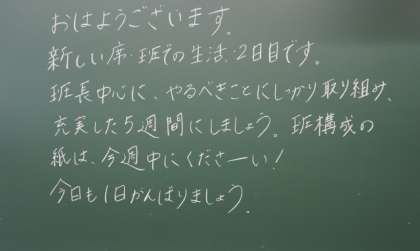 おはようございます。
新しい席・班での生活、2日目です。
班長中心に、やるべきことにしっかり取り組み、
充実した5週間にしましょう。班構成の
紙は、今週中にくださーい!
今日も1日がんばりましょう。